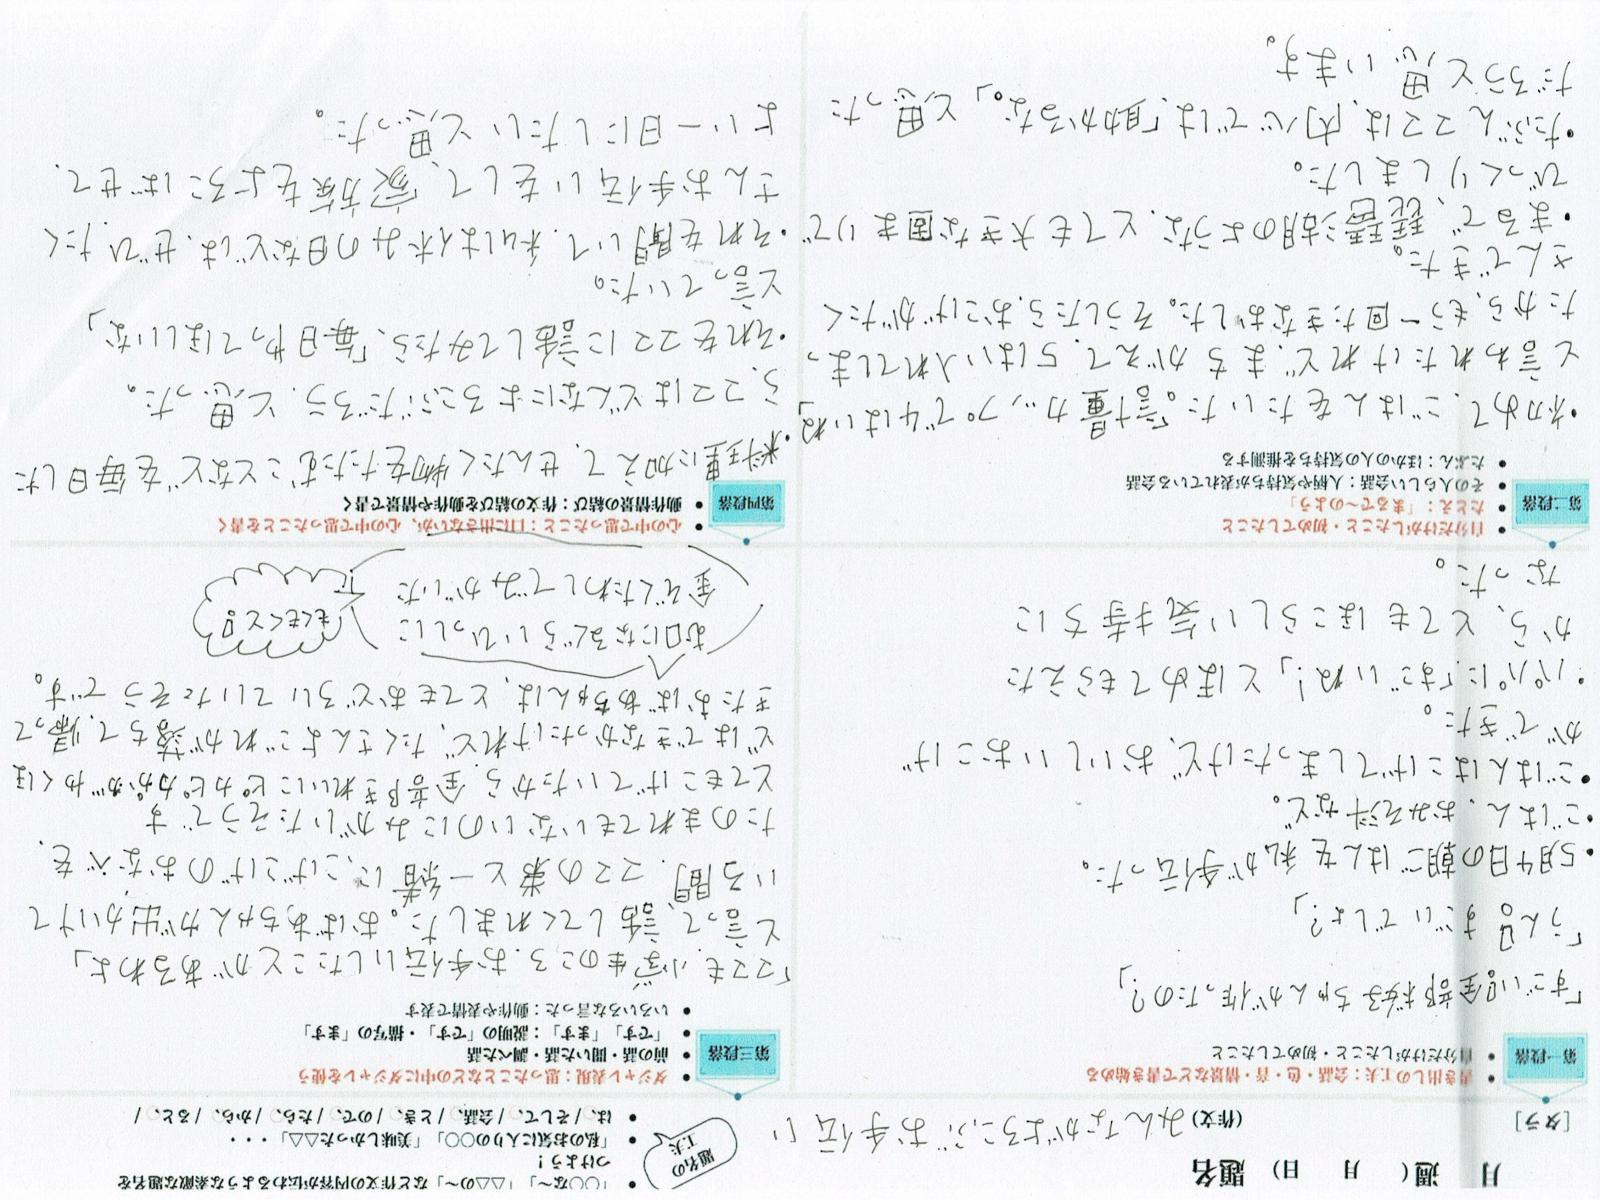 月　週（　月　日）　題名
［タラ］　（作文）みんながよろこぶお手伝い
題名の工夫
● 「○○な～」「△△の～」など作文の内容が伝わるような素敵な題名をつけよう！
● 「私のお気に入りの○○」「美味しかった△△」・・・
● は、/ そして、/ 会話、/ とき、/ ので、/ たら、/ から、/ ると、/
第一段落
● 書き出しの工夫：会話・色・音・情景・情などで書き始める
● 自分だけがしたこと・初めてしたこと
「すごい!全部桜子ちゃんが作ったの?」
「うん!すごいでしょ?」
・5月4日の朝ごはんを私が手伝った。
・ごはん、おみそ汁など。
・ごはんはこげてしまったけど、おいしいおこげ
ができた。
・パパに「すごいね!」とほめてもらえた
から、とてもほこらしい気持ちに
なった。
第二段落
● 自分だけがしたこと・初めてしたこと
● たとえ：「まるで～のよう」
● その人らしい会話：人柄や気持ちが表れている会話
● たぶん：ほかの人の気持ちを推測する
・初めて、ごはんをたいた。「計量カップで4はいね」
と言われたけれど、まちがえて、5はい入れてしまっ
たから、もう一回たきなおした。そうしたら、おこげがたく
さんできた。
・まるで、琵琶湖のような、とても大きな固まりで
びっくりしました。
・たぶんママは、内心では、「助かるな。」と思った
だろうと思います。
第三段落
● ダジャレ表現：思ったことなどの中にダジャレを使う
● 前の話・聞いた話・調べた話
● 「です」「ます」：説明の「です」・描写の「ます」
● いろいろな言った：動作や表情で表す
「ママも、小学生のころ、お手伝いしたことがあるわよ」
と言って、話してくれました。おばあちゃんが出かけて
いる間、ママの弟と一緒に、こげこげのおなべを、
たのまれてもいないのにみがいたそうです
とてもこげていたから、全部きれいにピカピカがやくほ
どはできなかったけれど、たくさんよごれが落ちて、帰って
きたおばあちゃんは、とてもおどろいていたそうです。
お口になるぐらいひっしに
金ぞくたわしでみがいた
もくもくと!
第四段落
● 心の中で思ったこと：口に出さないが、心の中で思ったことを書く
● 動作情景の結び：作文の結びを動作や情景で書く
・料理に加えて、せんたく物をたたむことなどを毎日した
ら、ママはどんなによろこぶだろう、と思った。
・それをママに話してみたら、「毎日やってほしいな」
と言っていた。
・それを聞いて、私は休みの日などは、ぜひたく
さんお手伝いをして、家族をよろこばせて、
よい一日にしたいと思った。